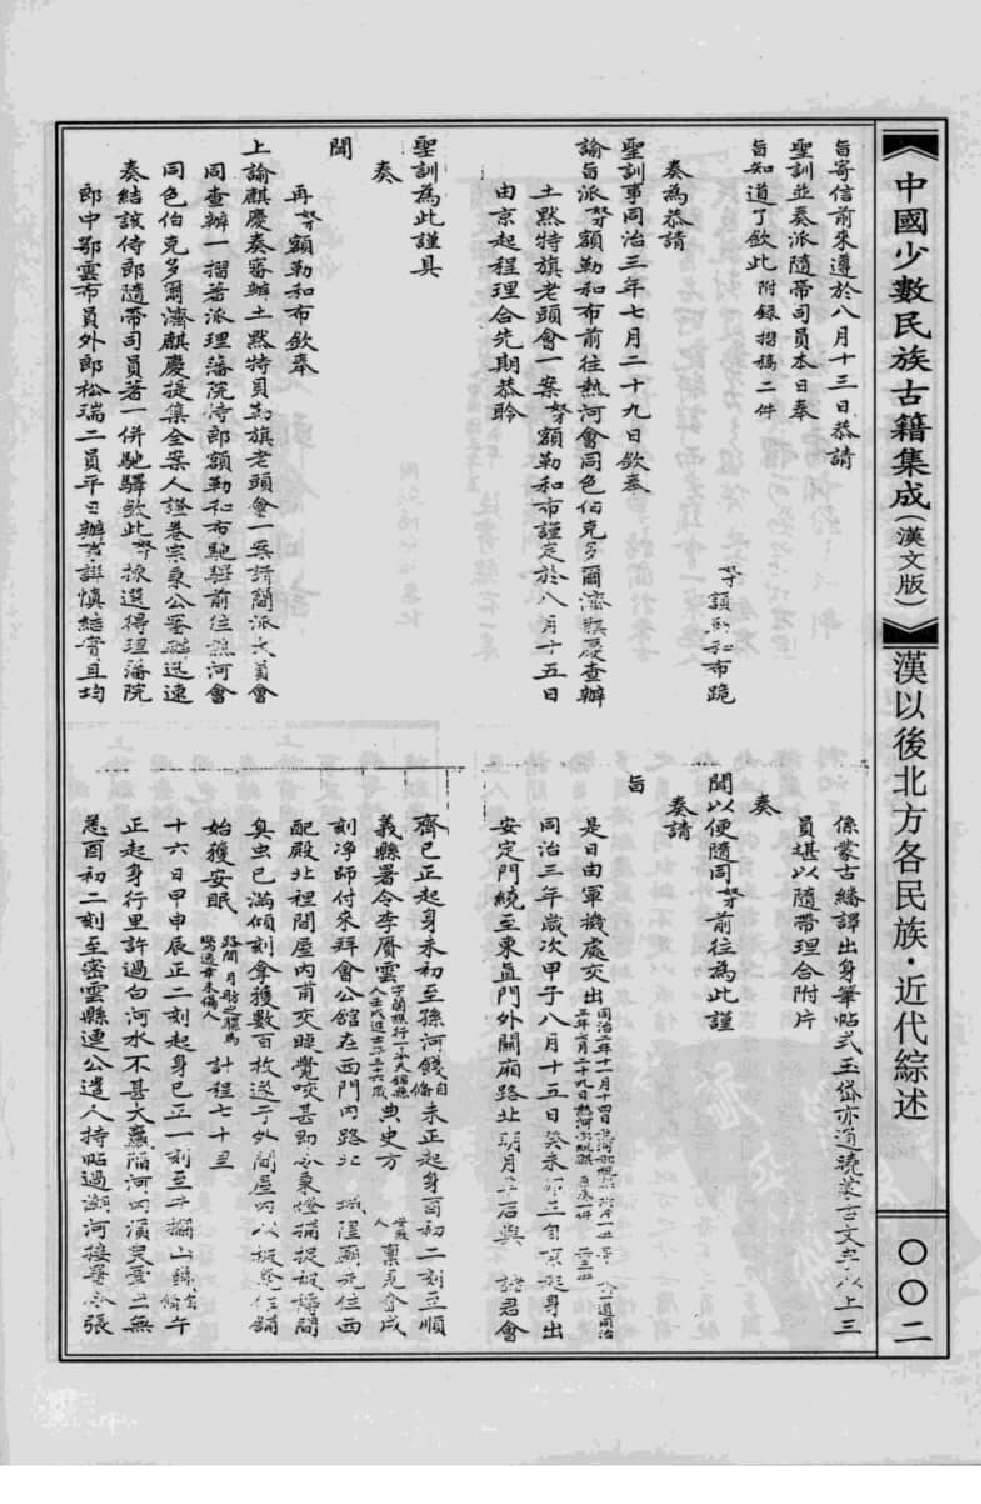 《中國少數民族古籍集成(漢文版)》漢以後北方各民族·近代綜述
〇〇二
旨寄信前來遵於八月十三日恭請
聖訓並奏派隨帶司員本日奉
旨知道了欽此 附錄摺稿二件
奴才額勒和布跪
奏為恭請
聖訓事同治三年七月二十九日欽奉
諭旨派奴才額勒和布前往熱河會同色伯克多爾濟麒慶查辦
土默特旗老頭會一案奴才額勒和布謹定於八月十五日
由京起程理合先期恭聆
聖訓為此謹具
奏
聞
再奴才額勒和布欽奉
上諭麒慶奏審辦土默特貝勒旗老頭會一案請簡派大員會
同查辦一摺著派理藩院侍郎額勒和布馳驛前往熱河會
同色伯克多爾濟麒慶提集全案人證卷宗秉公審辦迅速
奏結該侍郎隨帶司員著一併馳驛欽此奴才揀選得理藩院
郎中鄂雲布員外郎松瑞二員平日辦事詳慎結實且均
係蒙古繙譯出身筆帖式玉岱亦通曉蒙古文字以上三
員堪以隨帶理合附片
奏
聞以便隨同奴才前往為此謹
奏請
旨
是日由軍機處交出
同治三年歲次甲子八月十五日癸未卯正自京起身出
安定門繞至東直門外關廂路北朝月 石與 諸君會
齊已正起身未初至孫河餞自備未正起身酉初二刻至順
義縣署令李膺雲 典史方 稟見會成
刻凈師付來拜會公館在西門內路北 住西
配殿北裡間屋內甫交睫覺咬甚即 秉燈捕捉
臭虫已滿傾刻拿獲數百枚遂于外間屋內以板凳作鋪
始獲安眠 計程七十里
十六日甲申辰正二刻起身已正一刻至牛欄山 午
正起身行里許過白河水不甚大 河內 二無
恙酉初二刻至密雲縣連公遣人持帖過潮河接署令張